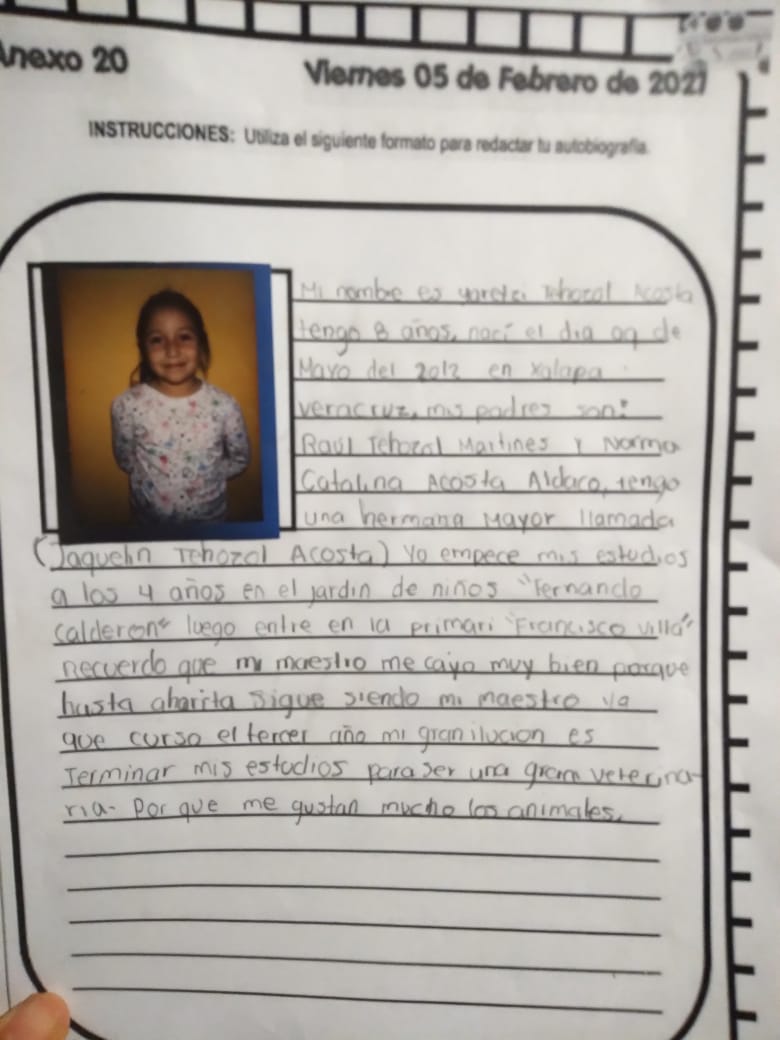 Anexo 20
Viernes 05 de Febrero de 2021
INSTRUCCIONES: Utiliza el siguiente formato para redactar tu autobiografía.
Mi nombre es yaretzi Tehozol Acosta
tengo 8 años, nací el dia 09 de
Mayo del 2012 en Xalapa
veracruz, mis padres son:
Raúl Tehozol Martines Y Norma
Catalina Acosta Aldaco, tengo
una hermana Mayor llamada
(Jaquelin Tehozol Acosta) Yo empece mis estudios
a los 4 años en el jardin de niños "Fernando
calderon" luego entre en la primari "Francisco villa"
recuerdo que mi maestro me cayo muy bien porque
hasta aharita sigue siendo mi maestro ya
que curso el tercer año mi gran ilucion es
Terminar mis estudios para ser una gram veterina-
ria- Por que me gustan mucho los animales.